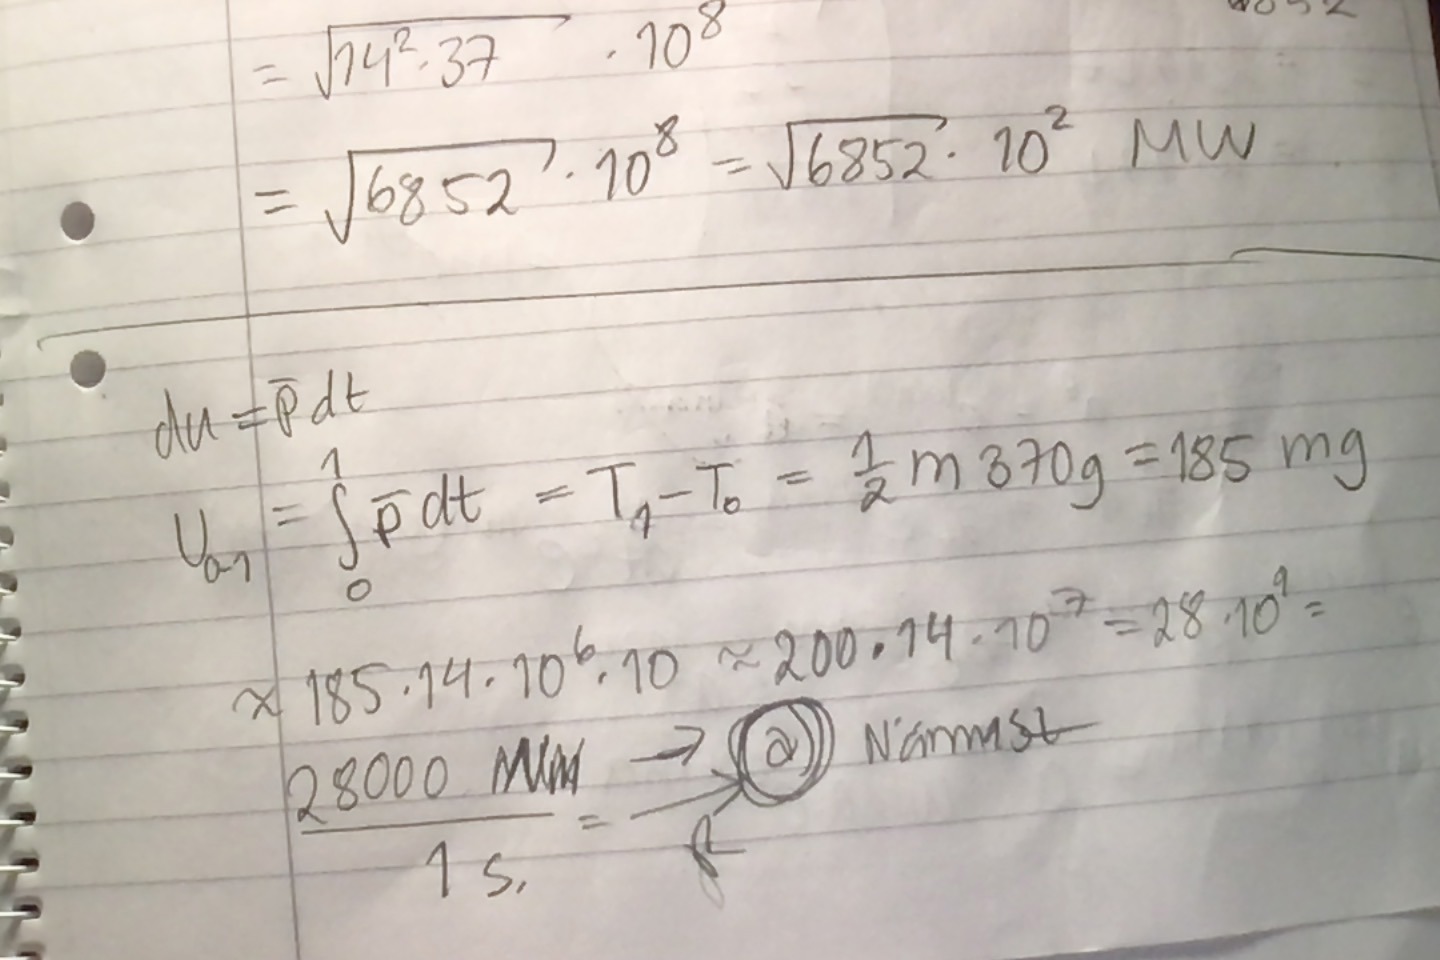 = √14²·37 · 10⁸
= √6852 · 10⁸ = √6852 · 10² MW
du = p̄ dt
U₀₋₁ = ∫₀¹ p̄ dt = T₁ - T₀ = ½ m 370g = 185 mg
≈ 185·14·10⁶·10 ≈ 200·14·10⁷ = 28·10⁹ =
28000 → a) Närmst
1 s. =